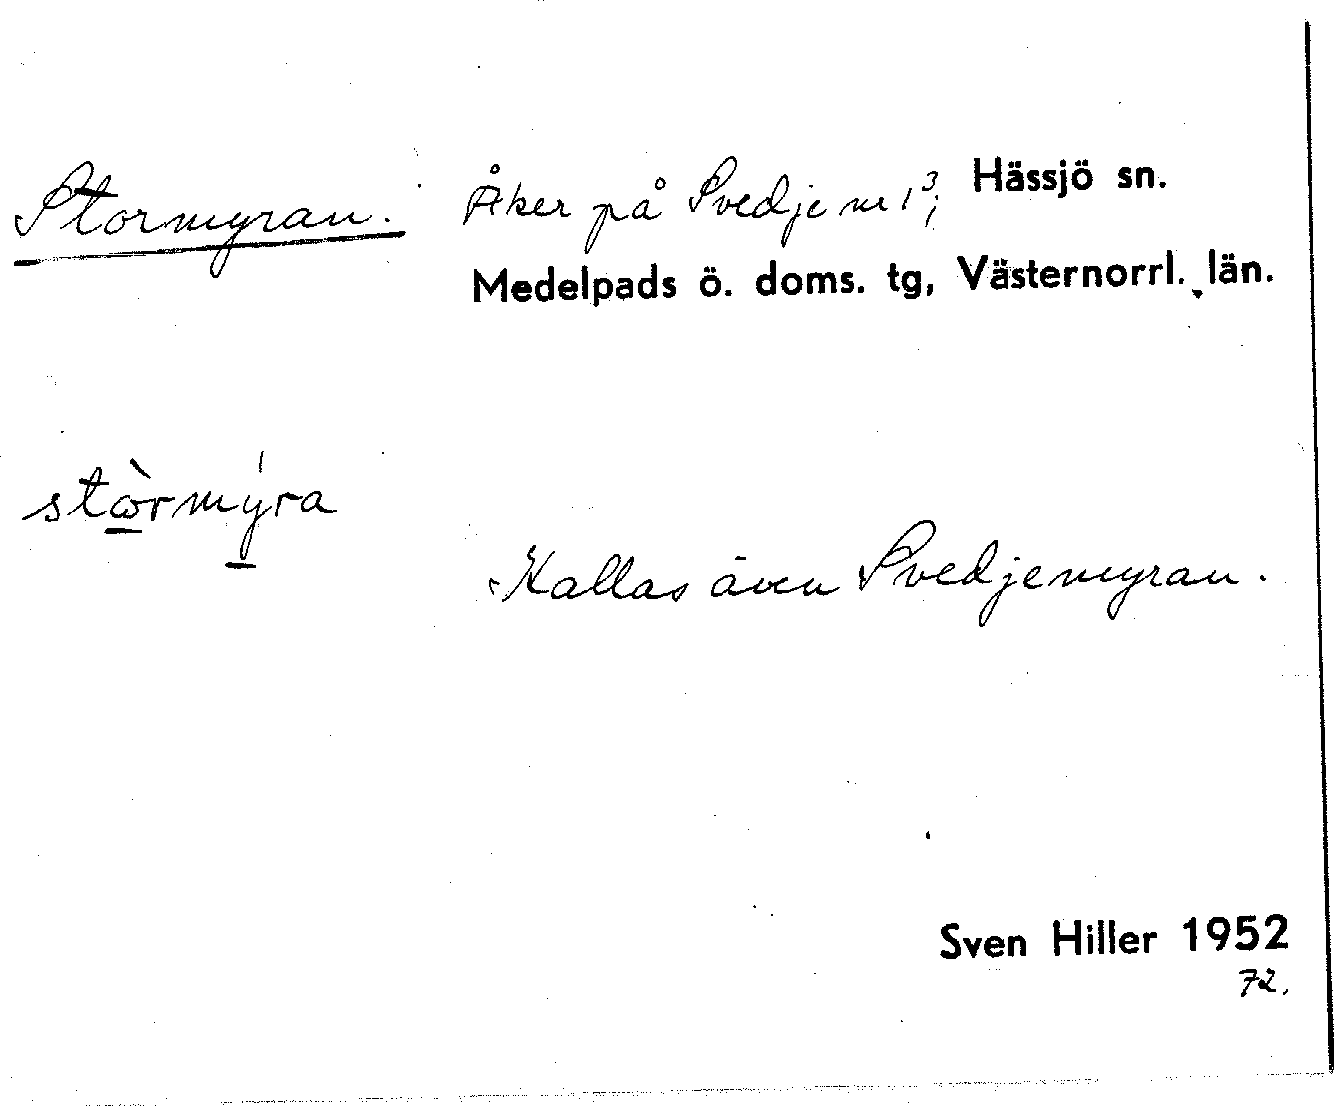 Stormyran. Åker på Svedje nr 1³; Hässjö sn.
Medelpads ö. doms. tg, Västernorrl. län.
stὼ̲rmý̲ra
Kallas även Svedjemyran.
Sven Hiller 1952
72.